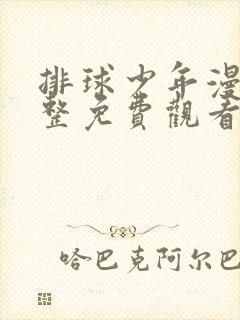 排球少年漫
整免費觀看
哈巴克阿尔巴